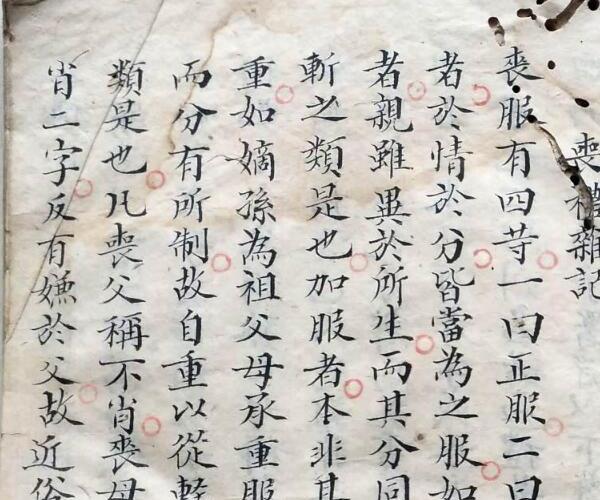 喪禮雜記
喪服有四等一曰正服二曰
者於情於分皆當為之服如
者親雖異於所生而其分同
斬之類是也加服者本非其
重如嫡孫為祖父母承重服
而分有所制故自重以從輕
類是也凡喪父稱不肖喪母
肖二字反有嫌於父故近俗